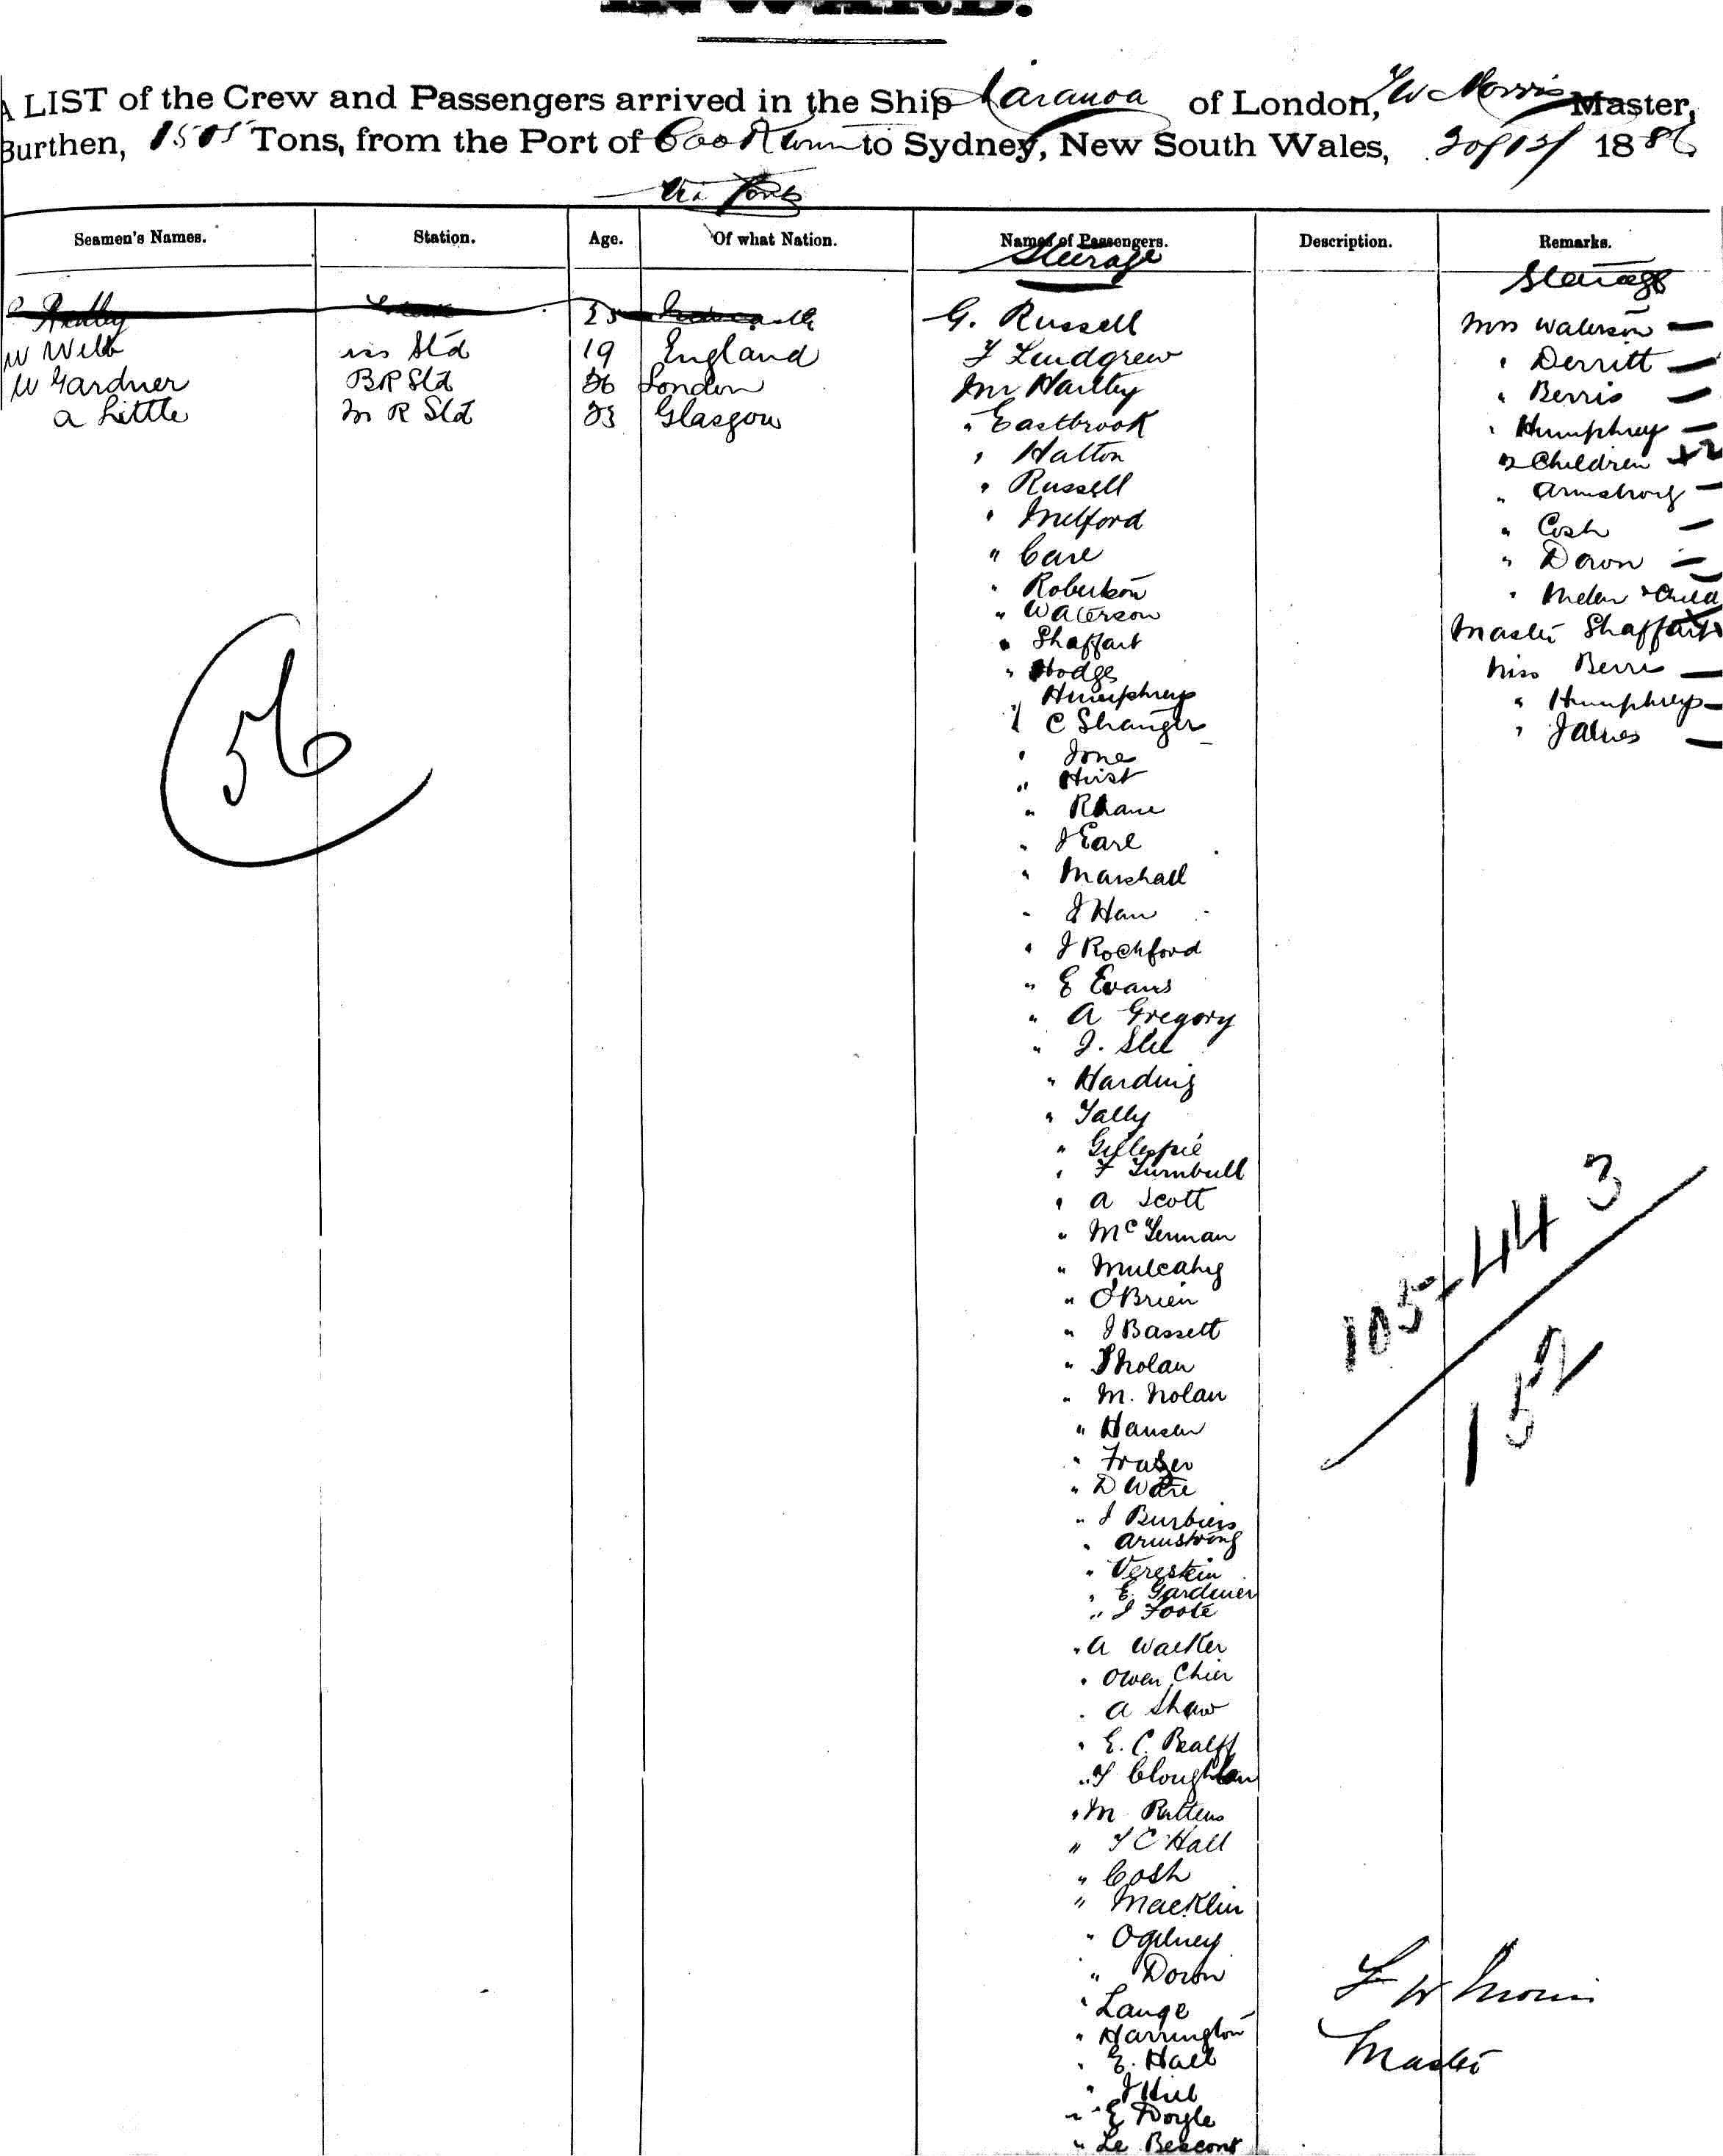 INWARD.
A LIST of the Crew and Passengers arrived in the Ship Waranoa of London, F W Morris Master,
Burthen, 1505 Tons, from the Port of Cooktown to Sydney, New South Wales, 20/12/ 1886
Via Ports
Seamen's Names. Station. Age. Of what Nation. Names of Passengers. Description. Remarks.
Steerage
Steerage
25
W Webb Std 19 England
W Gardner B R Std 26 London
A Little M R Std 23 Glasgow
56
G. Russell
F Lindgrew
Mr Hartley
" Eastbrook
" Hatton
" Russell
" Milford
" Carl
" Robertson
" Waterson
" Shaffart
" Hodge
" Humphreys
" C Shanger
" Jone
" Hirst
" Rhane
" J Earl
" Marshall
" J Han
" J Rochford
" E Evans
" A Gregory
" J. Slee
" Harding
" Tally
" Gillespie
" F Turnbull
" A Scott
" McLennan
" Mulcahy
" O'Brien
" J Bassett
" P Nolan
" M. Nolan
" Hansen
" Fraser
" D Ware
" J Burbiers
" Armstrong
" Verestein
" E. Gardener
" J Foote
" A Walker
" Owen Chier
" A Shaw
" E. C.
" T Cloughlan
" M
" T C Hall
" Cosh
" Macklin
" Ogilvey
" Down
" Lange
" Harrington
" E. Hall
" J Hill
" E Doyle
" Le Bescont
Mrs Waterson —
" Derritt —
" Berris —
" Humphrey —
2 Children + 2
" Armstrong —
" Cosh —
" Down —
" Child
Master Shaffart
Miss Berris —
" Humphreys —
" James —
105-44 3
152
F W Morris
Master